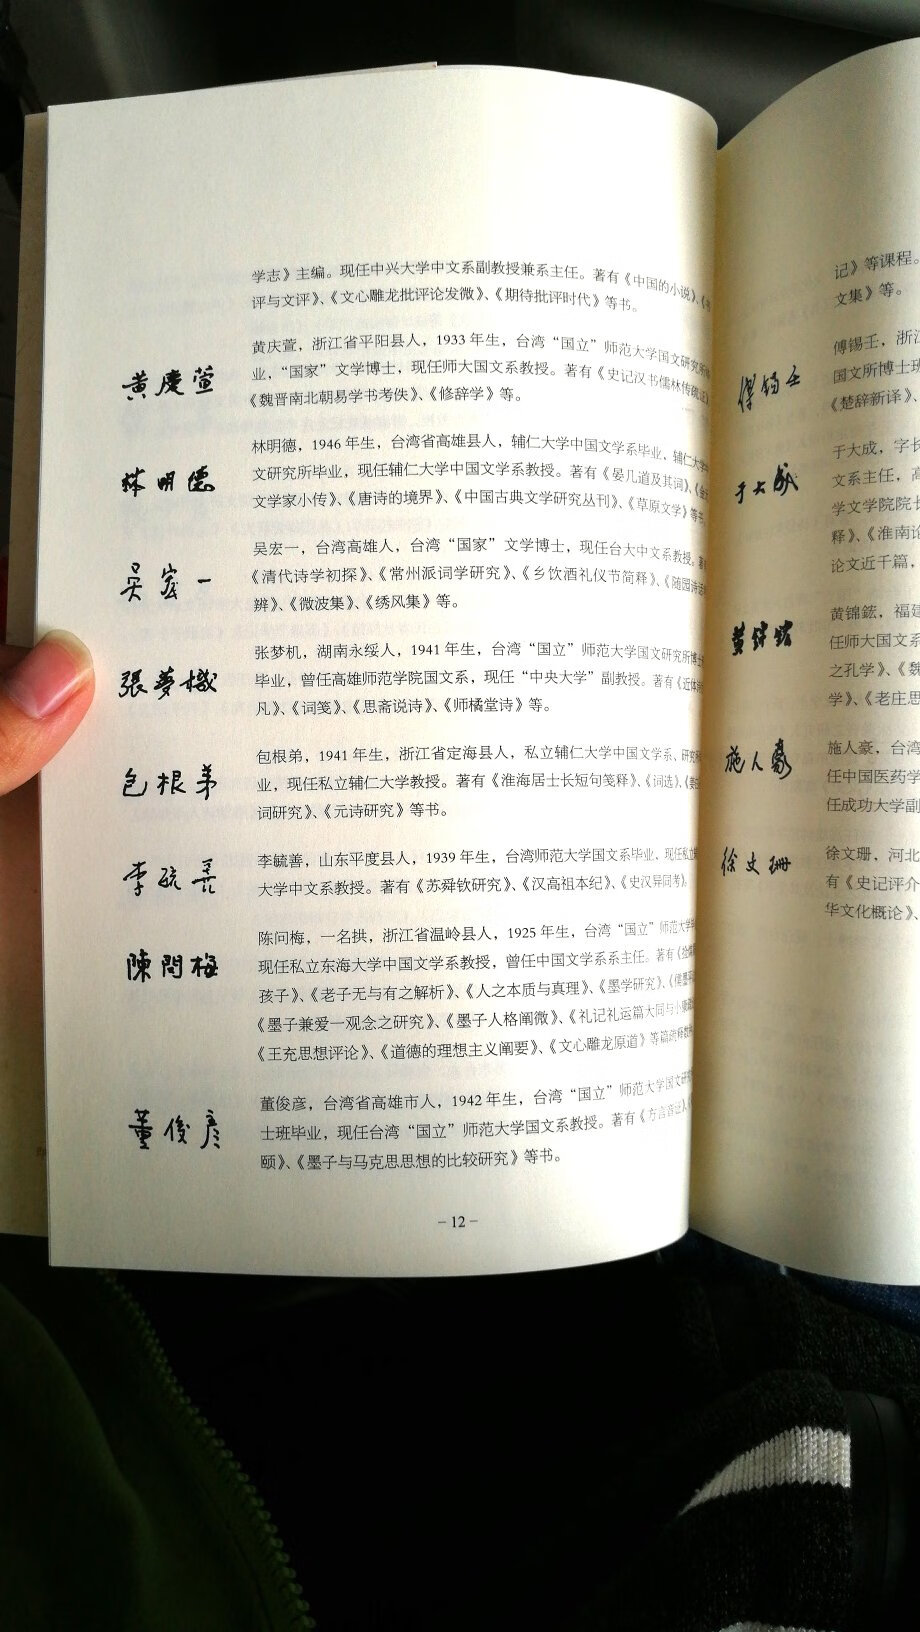 学志》主编。现任中兴大学中文系副教授兼系主任。著有《中国的小说》、《
评与文评》、《文心雕龙批评论发微》、《期待批评时代》等书。
黄慶萱
黄庆萱，浙江省平阳县人，1933年生，台湾“国立”师范大学国文研究所
业，“国家”文学博士，现任师大国文系教授。著有《史记汉书儒林传疏证》
《魏晋南北朝易学书考佚》、《修辞学》等。
林明德
林明德，1946年生，台湾省高雄县人，辅仁大学中国文学系毕业，辅仁大学
文研究所毕业，现任辅仁大学中国文学系教授。著有《晏几道及其词》、《
文学家小传》、《唐诗的境界》、《中国古典文学研究丛刊》、《草原文学》等书。
吴宏一
吴宏一，台湾高雄人，台湾“国家”文学博士，现任台大中文系教授。
《清代诗学初探》、《常州派词学研究》、《乡饮酒礼仪节简释》、《随园诗话
辨》、《微波集》、《绣风集》等。
張夢機
张梦机，湖南永绥人，1941年生，台湾“国立”师范大学国文研究所博士
毕业，曾任高雄师范学院国文系，现任“中央大学”副教授。著有《近体诗
凡》、《词笺》、《思斋说诗》、《师橘堂诗》等。
包根弟
包根弟，1941年生，浙江省定海县人，私立辅仁大学中国文学系、研究所
业，现任私立辅仁大学教授。著有《淮海居士长短句笺释》、《词选》、《
词研究》、《元诗研究》等书。
李毓善
李毓善，山东平度县人，1939年生，台湾师范大学国文系毕业，现任私立
大学中文系教授。著有《苏舜钦研究》、《汉高祖本纪》、《史汉异同考》。
陳問梅
陈问梅，一名拱，浙江省温岭县人，1925年生，台湾“国立”师范大学
现任私立东海大学中国文学系教授，曾任中国文学系系主任。著有《
孩子》、《老子无与有之解析》、《人之本质与真理》、《墨学研究》、《
《墨子兼爱一观念之研究》、《墨子人格阐微》、《礼记礼运篇大同与小康
《王充思想评论》、《道德的理想主义阐要》、《文心雕龙原道》等篇
董俊彦
董俊彦，台湾省高雄市人，1942年生，台湾“国立”师范大学国文研究
士班毕业，现任台湾“国立”师范大学国文系教授。著有《方言音证》、《
颐》、《墨子与马克思思想的比较研究》等书。
－12－
记》等课程。
文集》等。
傅锡壬
傅锡壬，浙江
国文所博士班
《楚辞新译》、
于大成
于大成，字长
文系主任，高
学文学院院长
释》、《淮南论
论文近千篇，
黄錦鋐
黄锦鋐，福建
任师大国文系
之孔学》、《魏
学》、《老庄思
施人豪
施人豪，台湾
任中国医药学
任成功大学副
徐文珊
徐文珊，河北
有《史记评介
华文化概论》、